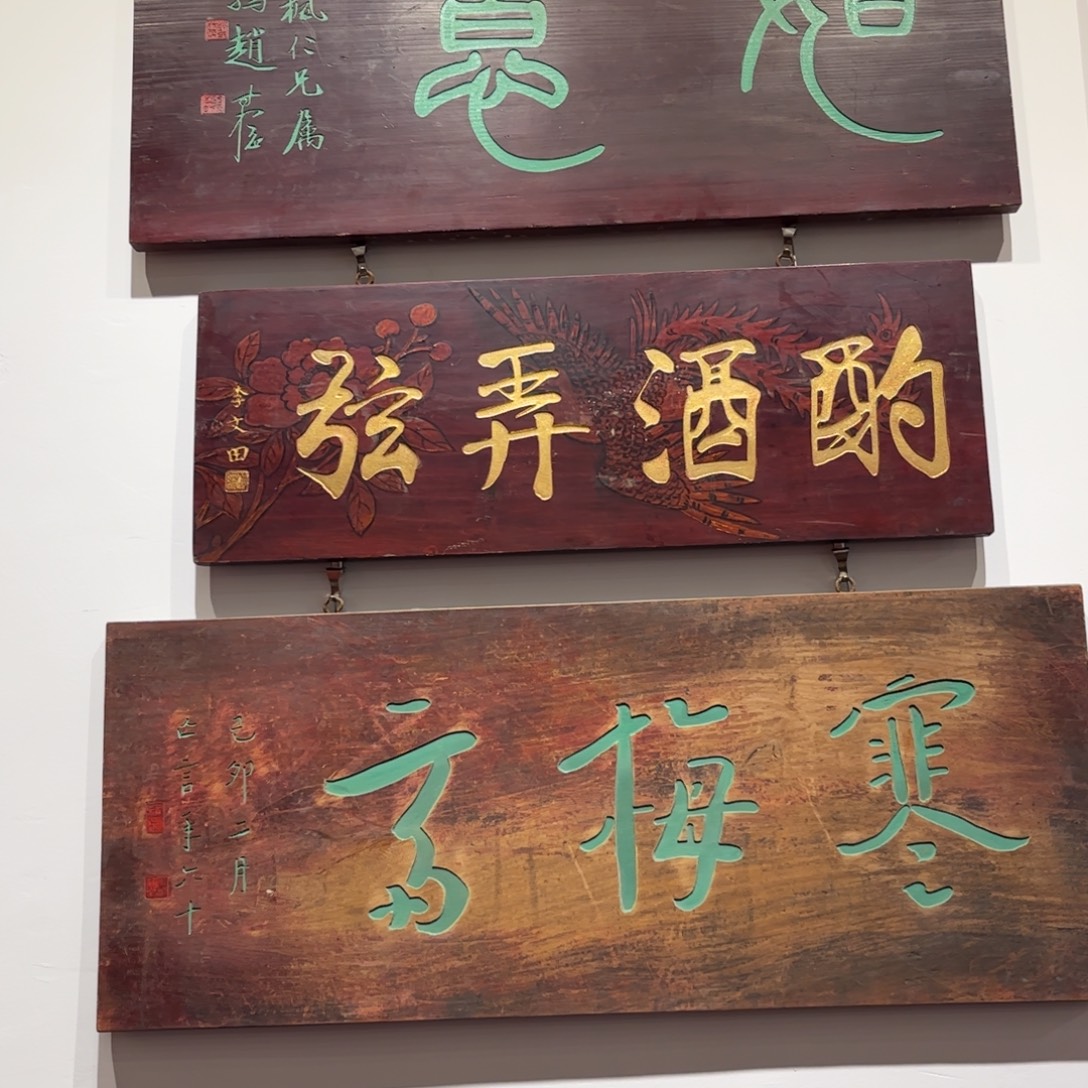 仁兄屬
趙
息
酌酒弄弦
李文田
寒梅
己卯二月
言年六十